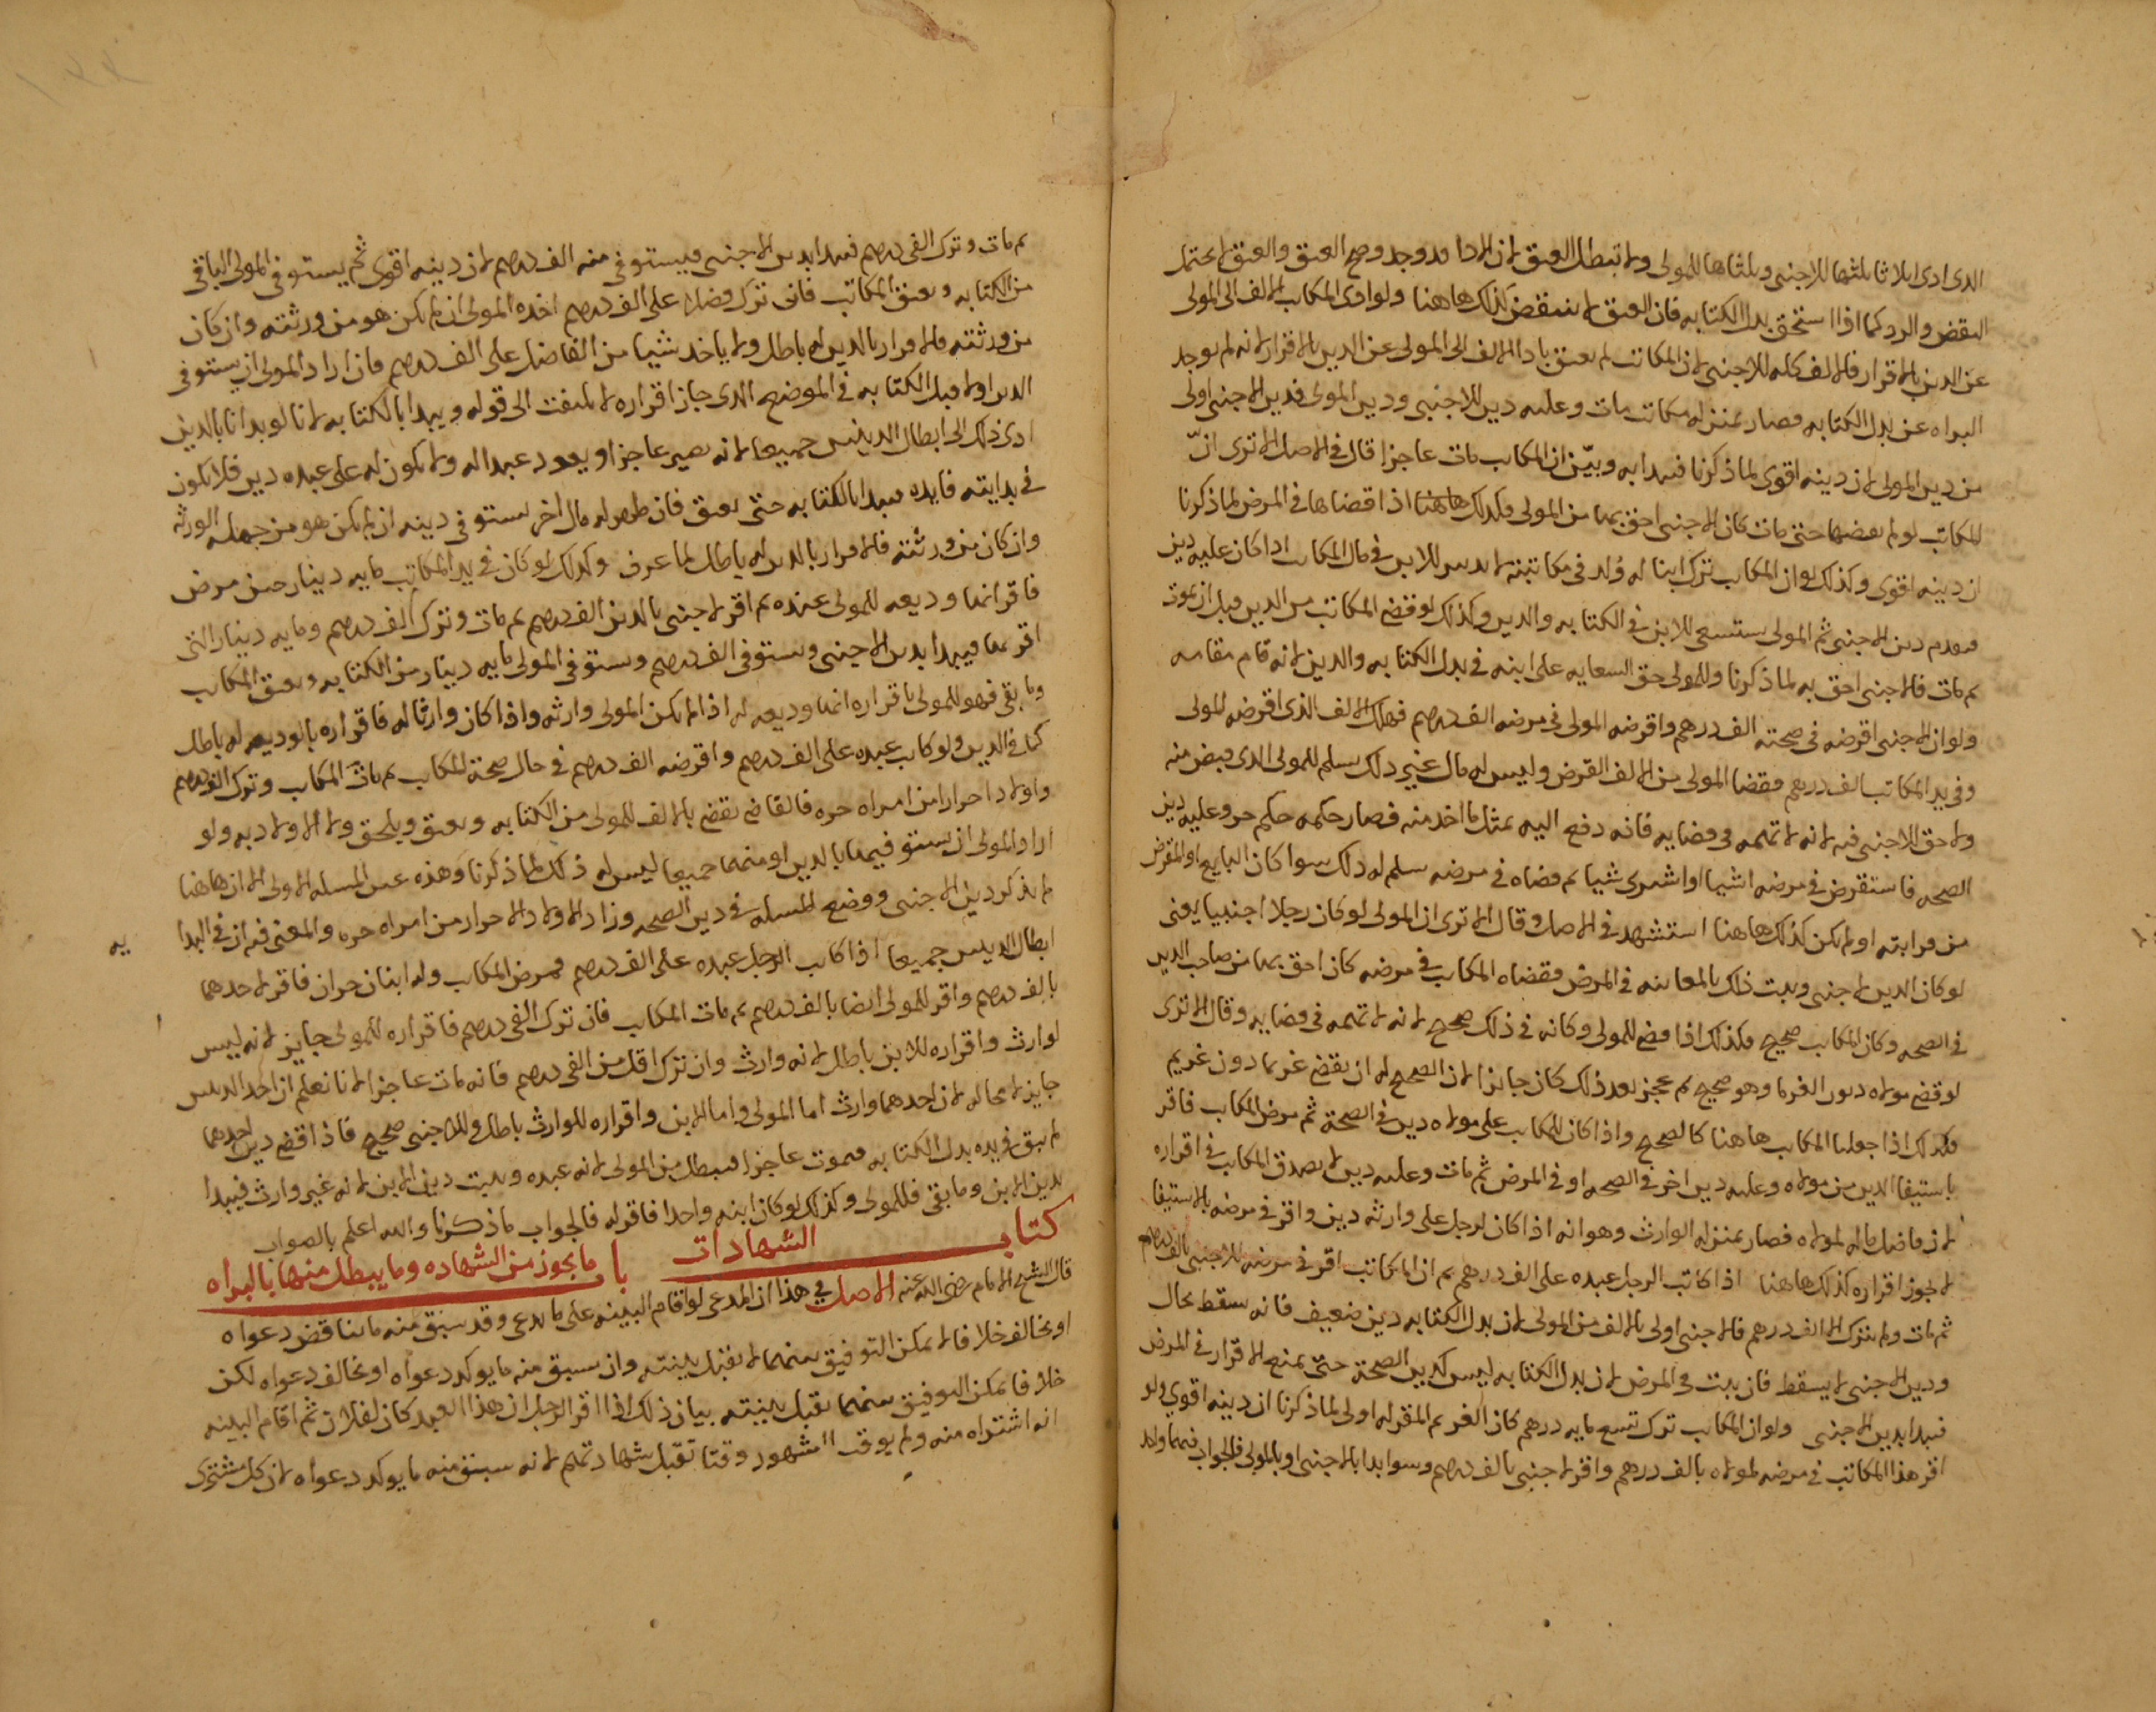 الدى ادى اىلاثا ىلثها للاجنبى وىلثاها للمولى ولا تبطل العىق لان الادا قد وجد وصح العىق والعىق لا يحتمل
النقض والرد كما اذا استحق بدل الكتابه فان العىق لا ىنىقض كذلك هاهنا ولو ادى المكاىب الالف الى المولى
عن الدىن بالاقرار فالالف كله للاجنبى لان المكاتب لم ىعىق بادا الالف الى المولى عن الدىن بالاقرار لانه لم ىوجد
البراه عن بدل الكتابه فصار بمنزله مكاتب مات وعلىه دىن للاجنبى ودىن المولى فدىن الاجنبى اولى
من دىن المولى لان دىنه اقوى لما ذكرنا فىبدا به وبيّن ان المكاىب مات عاجزا قال فى الاصل الا ترى انّ
المكاتب لو لم ىقضها حتى مات كان الاجنبى احق بها من المولى فكذلك هاهنا اذا قضاها فى المرض لما ذكرنا
ان دينه اقوى وكذلك لو ان المكاىب ترك ابنا له وُلد فى مكاتبته لا ىدىن للابن فى مال المكاىب اذا كان عليه دين
فىقدم دىن الاجنبى ثم المولى يستسعى للابن فى الكتابه والدىن وكذلك لو قضى المكاتب من الدىن قبل ان يموت
ىم مات فالاجنبى احق به لما ذكرنا وللمولى حق السعايه على ابنه فى بدل الكتابه والدين لانه قام مقامه
ولو ان الاجنبى اقرضه فى صحته الف درهم واقرضه المولى فى مرضه الف درهم فهلك الالف الذى اقرضه المولى
وفى يد المكاتب الف درهم فقضا المولى من الالف القرض وليس له مال غير ذلك سلم للمولى الذى قبض منه
ولا حق للاجنبى فىه لانه لا تهمه فى قضايه فانه دفع اليه بمثل ما اخد منه فصار حكمه حكم حر وعليه دين
الصحه فاستقرض فى مرضه اشيا او اشترى شيا ىم قضاه فى مرضه سلم له ذلك سوا كان البايع او المقرض
من قرابته او لم يكن كذلك هاهنا استشهد فى الاصل وقال الا ترى ان المولى لو كان رجلا اجنبيا يعنى
لو كان الدىن لاجنبى وىبت ذلك بالمعاىنه فى المرض فقضاه المكاىب فى مرضه كان احق بها من صاحب الدىن
فى الصحه وكان المكاىب صحيح فكذلك اذا قضى للمولى وكانه فى ذلك صحيح لانه لا تهمه فى قضايه وقال الا ترى
لو قضى مولاه دىون الغرما وهو صحيح ىم عجز بعد ذلك كان جايزا لان الصحيح له ان ىقضى غريما دون غريم
فكذلك اذا جعلىا المكاىب هاهنا كالصحيح واذا كان للمكاىب على مولاه دىن فى الصحة ثم مرض المكاىب فاقر
باستيفا الدىن من مولاه وعلىه دىن اخر فى الصحه او فى المرض ثم مات وعلىه دىن لا ىصدق المكاىب فى اقراره
لان فاضل ماله لمولاه فصار بمنزله الوارث وهو انه اذا كان لرجل على وارثه دين واقر فى مرضه بالاستيفا
لا يجوز اقراره كذلك هاهنا اذا كاتب الرجل عبده على الف درهم ىم ان المكاتب اقر فى مرضه للاجنبى بالف درهم
ثم مات ولم ىترك الا الف درهم فالاجنبى اولى بالالف من المولى لان بدل الكتابه دين ضعيف فانه سقط بحال
ودىن الاجنبى لا يسقط فان ىبت فى المرض لان بدل الكتابه ليس كدىن الصحة حتى يمنع الاقرار فى المرض
فىبدا بدىن الاجنبى ولو ان المكاىب ترك تسع مايه درهم كان الغرىم المقر له اولى لما ذكرنا ان دينه اقوي ولو
اقر هذا المكاتب فى مرضه لمولاه بالف درهم واقر لاجنبى بالف درهم وسوا بدا بالاجنبى او بالمولى فالجواب فىهما واحد
ىم مات وترك الفى درهم فىبدا بدىن الاجنبى فيستوفى منه الف درهم لان دينه اقوى ثم يستوفى المولى الباقى
من الكتابه وىعىق المكاتب فان ترك فضلا على الف درهم اخذه المولى ان لم يكن هو من ورثته وان كان
من ورثته فالاقرار بالدين له باطل ولا ياخد شيا من الفاضل على الف درهم فان اراد المولى ان يستوفى
الدىن اولا قبل الكتابه فى الموضع الدى جاز اقراره لا ىلىفت الى قوله ويبدا بالكتابه لانا لو بدانا بالدين
ادى ذلك الى ابطال الدينىن جميعا لانه ىصير عاجزا ويعود عبدا له ولا ىكون له على عبده دين فلا ىكون
فى بدايته فايده فىبدا بالكتابه حتى ىعىق فان ظهر له مال اخر ىستوفى دينه ان لم يكن هو من جمله الورثه
وان كان من ورثته فالاقرار بالدىن له باطل لما عرف وكذلك لو كان فى يد المكاتب مايه دينار حىن مرض
فاقر انها وديعه للمولى عنده ىم اقر لاجنبى بالدىن الف درهم ىم مات وترك الف درهم ومايه دينار التى
اقر بها فيبدا بدىن الاجنبى وىستوفى الف درهم وىستوفى المولى مايه دينار من الكتابه وىعىق المكاىب
وما بقى فهو للمولى باقراره انها وديعه له اذا لم يكن المولى وارثه واذا كان وارثا له فاقراره بالوديعه له باطل
كما فى الدين ولو كاىب عبده على الف درهم واقرضه الف درهم فى حال صحة المكاىب ىم مات المكاىب وترك الف درهم
واولادا احرارا من امراه حره فالقاضى ىقضى بالالف للمولى من الكتابه وىعىق ويلحق ولا الاولاد به ولو
اراد المولى ان ىستوفيها بالدىن او منهما جميعا ليس له ذلك لما ذكرنا وهذه عىن المسله الاولى الا ان هاهنا
لم ىذكر دىن الاجنبى ووضع المسله فى دين الصحه وزاد الاولاد الاحرار من امراه حره والمعنى فىه ان فى البدا
يه
ابطال الدىىىن جميعا اذا كاىب الرجل عبده على الف درهم فمرض المكاىب وله ابنان حران فاقر لاحدهما
بالف درهم واقر للمولى اىضا بالف درهم ىم مات المكاىب فان ترك الفى درهم فاقراره للمولى جايز لانه ليس
لوارث واقراره للابن باطل لانه وارث وان ترك اقل من الفى درهم فانه مات عاجزا لانا نعلم ان احد الدىىىن
جايز لا محاله لان احدهما وارث اما المولى واما الابن واقراره للوارث باطل وللاجنبى صحيح فاذا قضى دين احدهما
لم ىبق فى يده بدل الكتابه فىموت عاجزا فىبطل دىن المولى لانه عبده وىىبت دين الابن لانه غير وارث فيبدا
بدين الابن وما بقى فللمولى وكذلك لو كان ابنه واحدا فاقر له فالجواب ما ذكرنا والله اعلم بالصواب
كتاب الشهادات باب ما يجوز من الشهاده وما يبطل منها بالبراه
قال الشيخ الامام رضى الله عنه الاصل في هذا ان المدعى لو اقام البينه على ما ىدعى وقد سبق منه ما ىناقض دعواه
او يخالف خلافا لا يمكن التوفيق بىنهما لا ىقبل بينته وان سبق منه ما يوكد دعواه او يخالف دعواه لكن
خلافا يمكن التوفيق بىنهما ىقبل بينته بيان ذلك اذا اقر الرجل ان هذا العبد كان لفلان ثم اقام البينه
انه اشتراه منه ولم يوقت الشهود وقتا تقبل شهادتهم لانه سبق منه ما يوكد دعواه لان كل مشترى